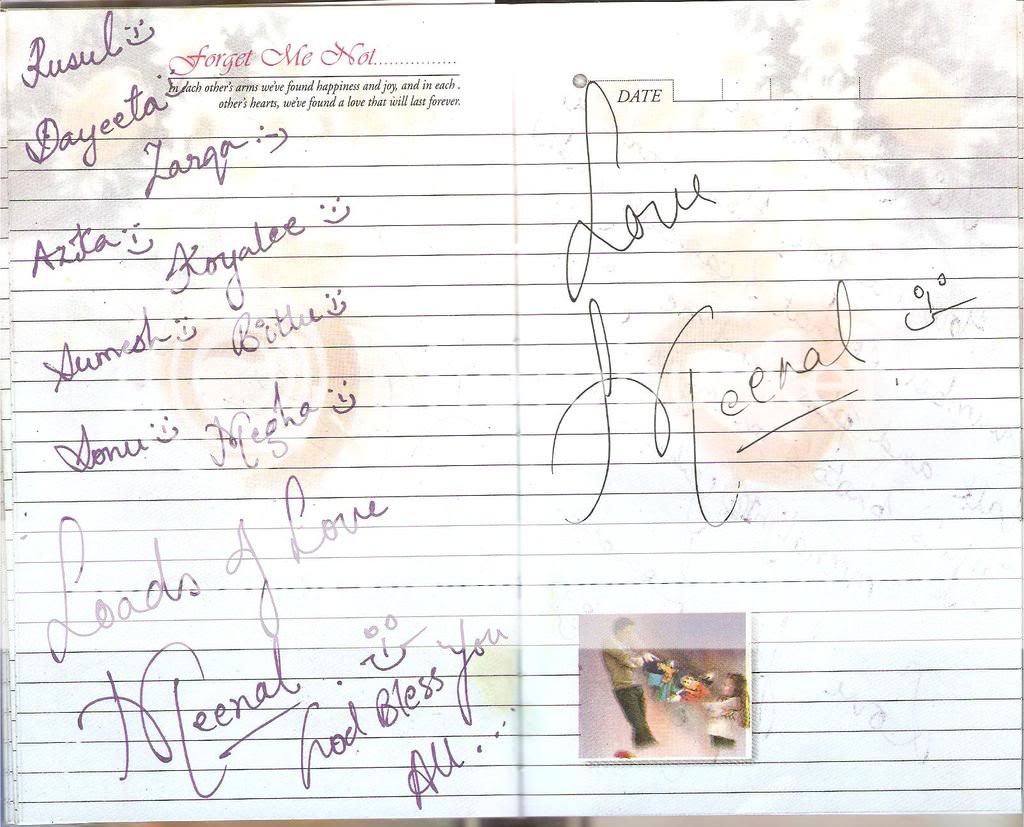 Rusul
Forget Me Not................
In each other's arms we've found happiness and joy, and in each .
other's hearts, we've found a love that will last forever.
Dayeeta
Zarqa :-)
Azita
Koyalee
Sumesh
Bittu
Sonu
Megha
Loads of Love
Meenal.
God Bless You
All...
DATE
Love
Meenal